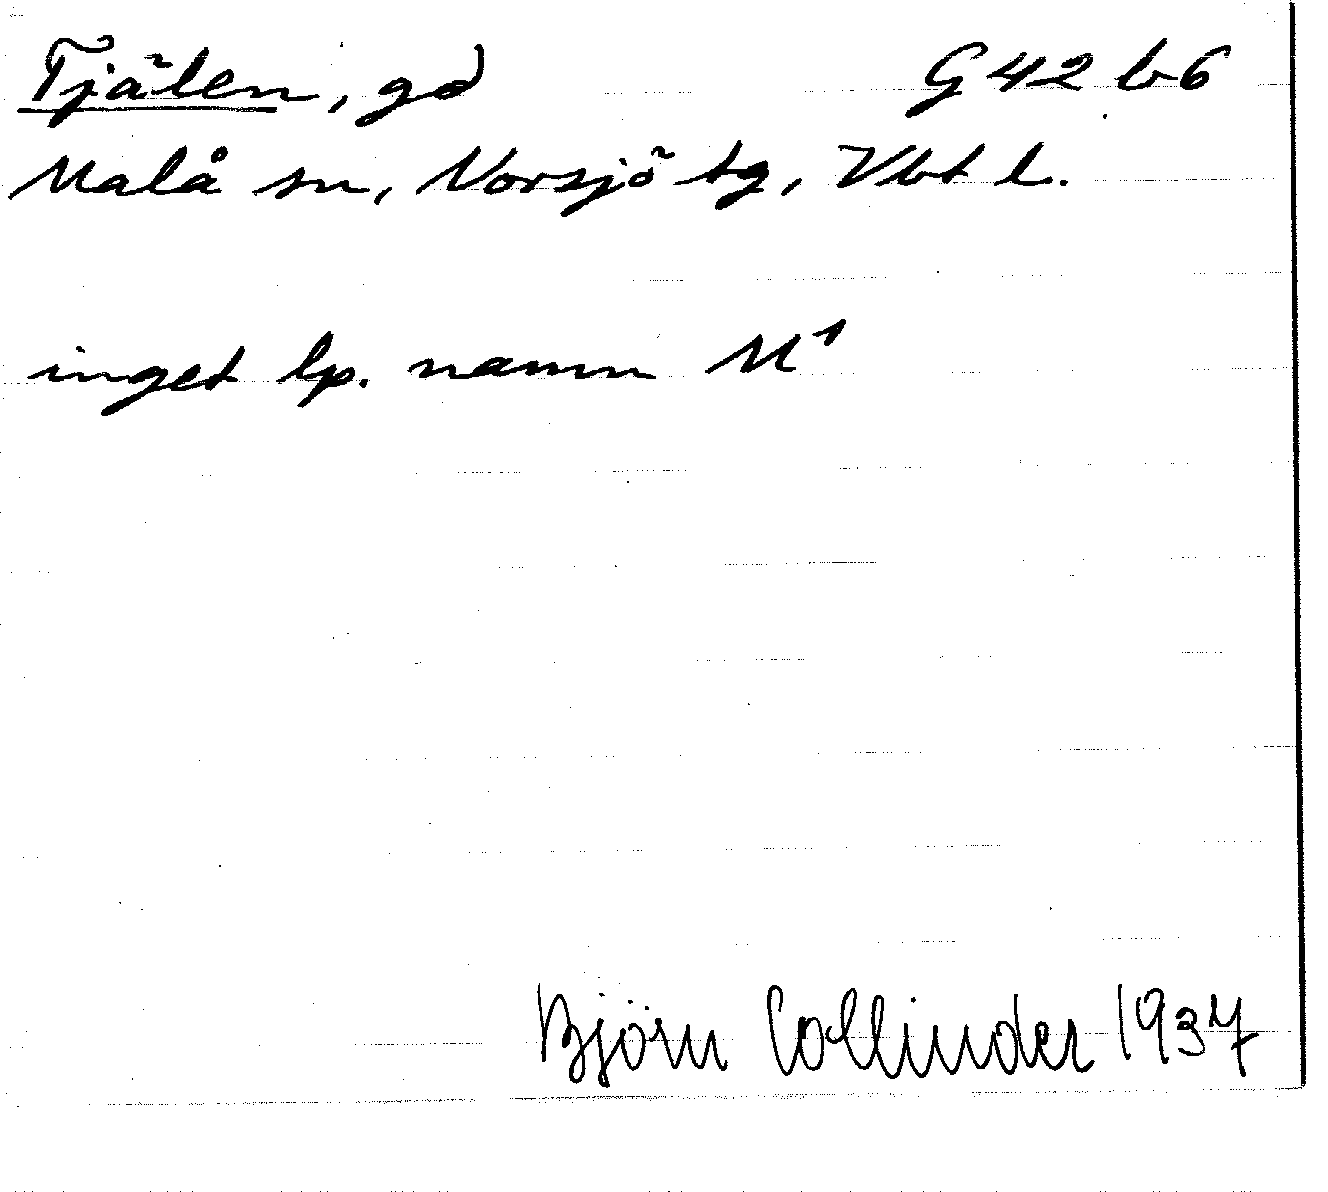 Tjälen, gd G42 b6
Malå sn, Norsjö tg, Vbt l.
inget lp. namn M¹
Björn Collinder 1937